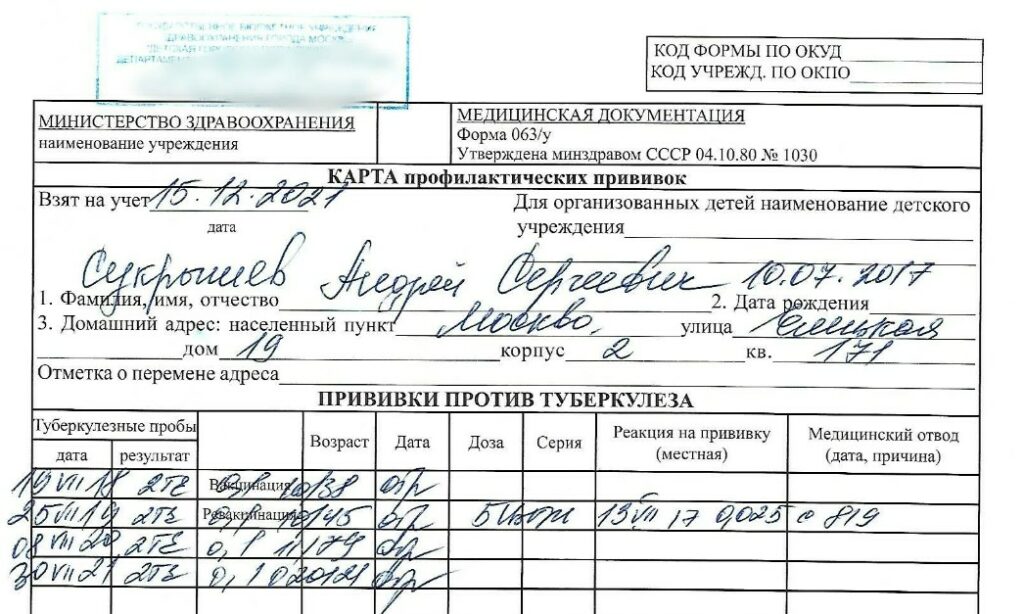 ГОСУДАРСТВЕННОЕ БЮДЖЕТНОЕ УЧРЕЖДЕНИЕ
ЗДРАВООХРАНЕНИЯ ГОРОДА МОСКВЫ
КОД ФОРМЫ ПО ОКУД
КОД УЧРЕЖД. ПО ОКПО
МИНИСТЕРСТВО ЗДРАВООХРАНЕНИЯ
наименование учреждения
МЕДИЦИНСКАЯ ДОКУМЕНТАЦИЯ
Форма 063/у
Утверждена минздравом СССР 04.10.80 № 1030
КАРТА профилактических прививок
Взят на учет 15.12.2021
дата
Для организованных детей наименование детского
учреждения
Сукрышев Андрей Сергеевич 10.07.2017
1. Фамилия, имя, отчество 2. Дата рождения
3. Домашний адрес: населенный пункт Москва, улица
дом 19 корпус 2 кв. 171
Отметка о перемене адреса
ПРИВИВКИ ПРОТИВ ТУБЕРКУЛЕЗА
Туберкулезные пробы Возраст Дата Доза Серия Реакция на прививку (местная) Медицинский отвод (дата, причина)
дата результат
19 VII 18 2ТЕ Вакцинация отр
25 VII 19 2ТЕ Ревакцинация отр 13 VII 17 0,025 с 819
08 VIII 20 2ТЕ отр
30 VII 21 2ТЕ отр